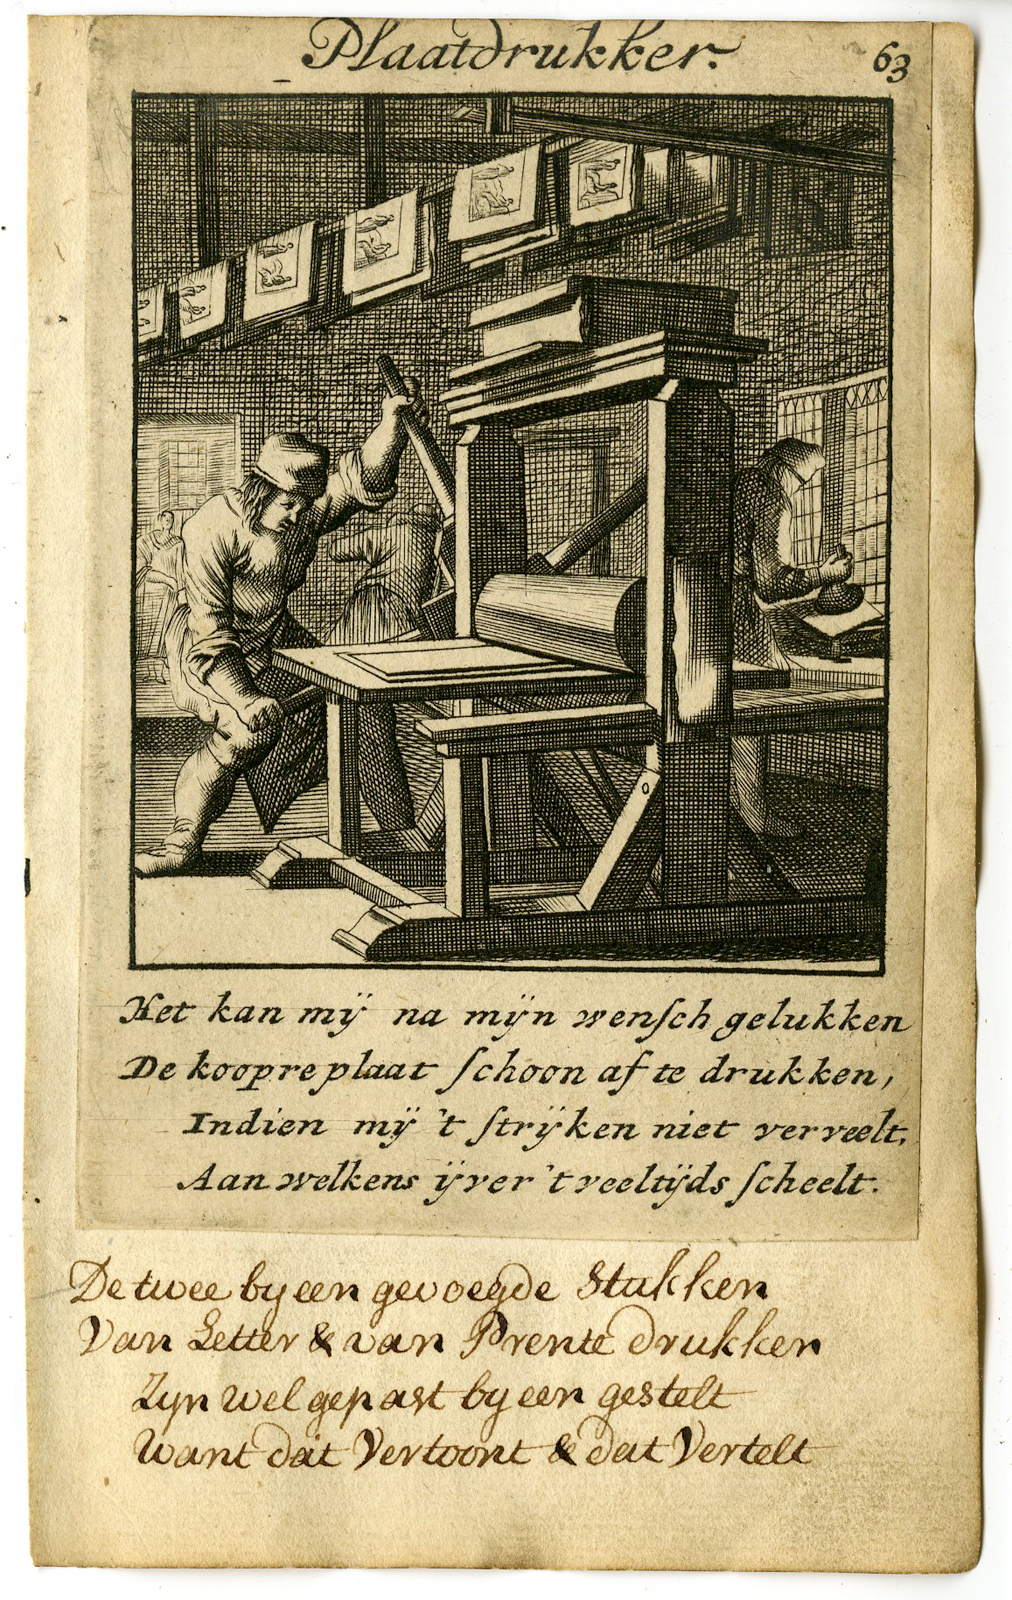 Plaatdrukker.
63
Het kan mÿ na mÿn wenſch gelukken
De koopre plaat ſchoon af te drukken,
Indien mÿ 't ſtrÿken niet verveelt,
Aan welkens ÿver 't veeltÿds ſcheelt.
De twee by een gevoegde Stukken
Van Letter & van Prente drukken
Zyn wel gepast by een gestelt
Want dat Vertoont & dat Vertelt